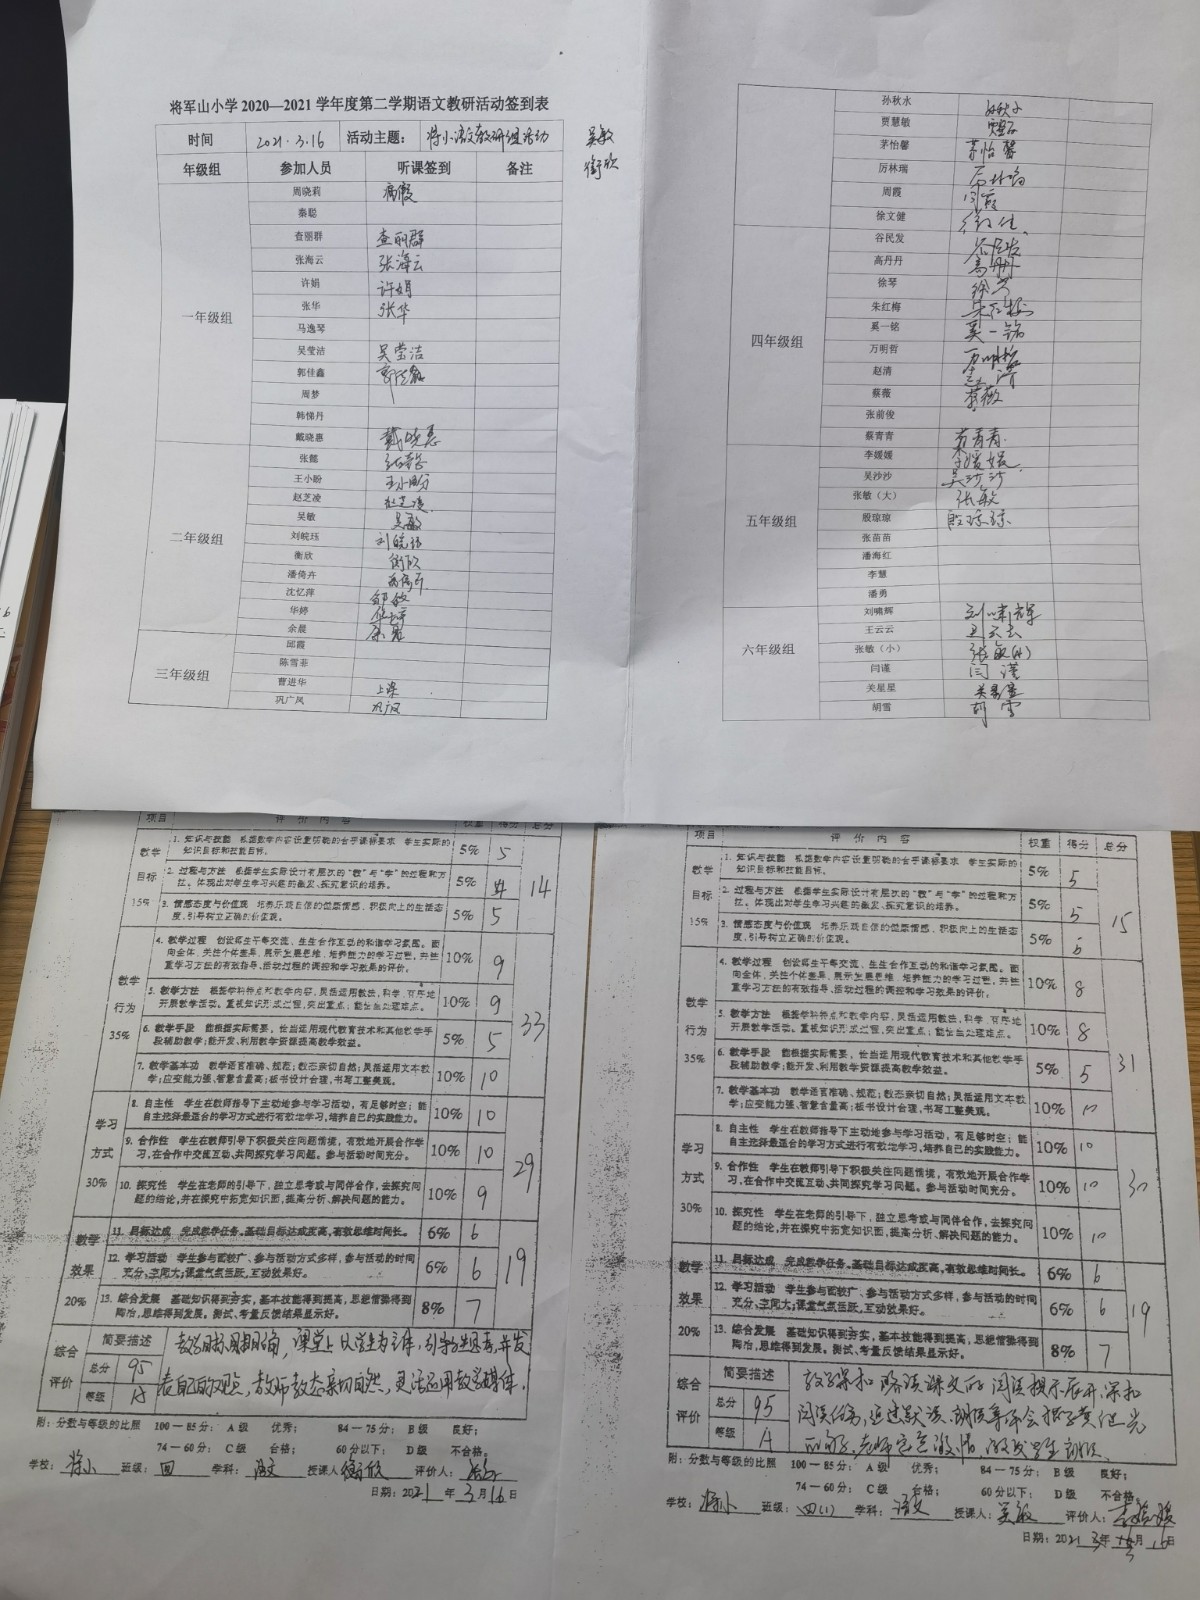 将军山小学 2020—2021 学年度第二学期语文教研活动签到表
时间 2021.3.16 活动主题： 将小语文教研组活动
吴敏
衡欣
年级组 参加人员 听课签到 备注
一年级组
周晓莉 病假
秦聪
查丽群 查丽群
张海云 张海云
许娟 许娟
张华 张华
马逸琴
吴莹洁 吴莹洁
郭佳鑫 郭佳鑫
周梦
韩悌丹
戴晓惠 戴晓惠
二年级组
张懿
王小盼 王小盼
赵芝凌 赵芝凌
吴敏 吴敏
刘皖珏 刘皖珏
衡欣 衡欣
潘倚卉 潘倚卉
沈忆萍
华婷 华婷
余晨 余晨
三年级组
邱霞
陈雪菲
曹进华 上课
巩广凤 巩广凤
孙秋水 孙秋水
贾慧敏
茅怡馨 茅怡馨
厉林瑞 厉林瑞
周霞 周霞
徐文健
四年级组
谷民发 谷民发
高丹丹 高丹丹
徐琴 徐琴
朱红梅 朱红梅
奚一铭 奚一铭
万明哲 万明哲
赵清 赵清
蔡薇 蔡薇
张前俊
蔡青青 蔡青青
五年级组
李媛媛 李媛媛
吴沙沙 吴沙沙
张敏（大） 张敏
殷琼琼 殷琼琼
张苗苗
潘海红
李慧
潘勇
六年级组
刘啸辉 刘啸辉
王云云 王云云
张敏（小） 张敏(小)
闫谨 闫谨
关星星 关星星
胡雪 胡雪
项目 评价内容 权重 得分 总分
教学目标 15% 14
1. 知识与技能 根据教学内容设置明确的合乎课标要求 学生实际的知识目标和技能目标。 5% 5
2. 过程与方法 根据学生实际设计有层次的“教”与“学”的过程和方法。体现出对学生学习兴趣的激发、探究意识的培养。 5% 4
3. 情感态度与价值观 培养乐观自信的健康情感、积极向上的生活态度，引导树立正确的价值观。 5% 5
教学行为 35% 33
4. 教学过程 创设师生平等交流、生生合作互动的和谐学习氛围。面向全体、关注个体差异、展示发展思维、培养能力的学习过程，并注重学习方法的有效指导、活动过程的调控和学习效果的评价。 10% 9
5. 教学方法 根据学科特点和教学内容，灵活运用教法，科学、有序地开展教学活动。重视知识形成过程，突出重点；能恰当处理难点。 10% 9
6. 教学手段 能根据实际需要，恰当运用现代教育技术和其他教学手段辅助教学；能开发、利用教学资源提高教学效益。 5% 5
7. 教学基本功 教学语言准确、规范；教态亲切自然；灵活运用文本教学；应变能力强、智慧含量高；板书设计合理，书写工整美观。 10% 10
学习方式 30% 29
8. 自主性 学生在教师引导下主动地参与学习活动，有足够时空；能自主选择最适合的学习方式进行有效地学习，培养自己的实践能力。 10% 10
9. 合作性 学生在教师引导下积极关注问题情境，有效地开展合作学习，在合作中交流互动、共同探究学习问题。参与活动时间充分。 10% 10
10. 探究性 学生在老师的引导下，独立思考或与同伴合作，去探究问题的结论，并在探究中拓宽知识面，提高分析、解决问题的能力。 10% 9
教学效果 20% 19
11. 目标达成 完成教学任务。基础目标达成度高，有效思维时间长。 6% 6
12. 学习活动 学生参与面较广、参与活动方式多样，参与活动的时间充分、空间大；课堂气氛活跃，互动效果好。 6% 6
13. 综合发展 基础知识得到夯实，基本技能得到提高，思想情操得到陶冶，思维得到发展。测试、考量反馈结果显示好。 8% 7
综合评价 简要描述 教学目标明确，课堂上以学生为主体，引导学生思考，并发
总分 95 表自己的观点，教师教态亲切自然，灵活运用教学媒体。
等级 A
附：分数与等级的比照 100－85分： A 级 优秀； 84－75分： B 级 良好；
74－60分： C 级 合格； 60分以下： D 级 不合格。
学校：将小 班级：四 学科：语文 授课人：衡欣 评价人：
日期：2021 年 3 月 16 日
项目 评价内容 权重 得分 总分
教学目标 15% 15
1. 知识与技能 根据教学内容设置明确的合乎课标要求 学生实际的知识目标和技能目标。 5% 5
2. 过程与方法 根据学生实际设计有层次的“教”与“学”的过程和方法。体现出对学生学习兴趣的激发、探究意识的培养。 5% 5
3. 情感态度与价值观 培养乐观自信的健康情感、积极向上的生活态度，引导树立正确的价值观。 5% 5
教学行为 35% 31
4. 教学过程 创设师生平等交流、生生合作互动的和谐学习氛围。面向全体、关注个体差异、展示发展思维、培养能力的学习过程，并注重学习方法的有效指导、活动过程的调控和学习效果的评价。 10% 8
5. 教学方法 根据学科特点和教学内容，灵活运用教法，科学、有序地开展教学活动。重视知识形成过程，突出重点；能恰当处理难点。 10% 8
6. 教学手段 能根据实际需要，恰当运用现代教育技术和其他教学手段辅助教学；能开发、利用教学资源提高教学效益。 5% 5
7. 教学基本功 教学语言准确、规范；教态亲切自然；灵活运用文本教学；应变能力强、智慧含量高；板书设计合理，书写工整美观。 10% 10
学习方式 30% 30
8. 自主性 学生在教师引导下主动地参与学习活动，有足够时空；能自主选择最适合的学习方式进行有效地学习，培养自己的实践能力。 10% 10
9. 合作性 学生在教师引导下积极关注问题情境，有效地开展合作学习，在合作中交流互动、共同探究学习问题。参与活动时间充分。 10% 10
10. 探究性 学生在老师的引导下，独立思考或与同伴合作，去探究问题的结论，并在探究中拓宽知识面，提高分析、解决问题的能力。 10% 10
教学效果 20% 19
11. 目标达成 完成教学任务。基础目标达成度高，有效思维时间长。 6% 6
12. 学习活动 学生参与面较广、参与活动方式多样，参与活动的时间充分、空间大；课堂气氛活跃，互动效果好。 6% 6
13. 综合发展 基础知识得到夯实，基本技能得到提高，思想情操得到陶冶，思维得到发展。测试、考量反馈结果显示好。 8% 7
综合评价 简要描述 教学深扣略读课文的阅读提示展开，深扣
总分 95 阅读任务，通过默读、朗读等体会孩子黄继光
等级 A 老师 激情，激发学生朗读。
附：分数与等级的比照 100－85分： A 级 优秀； 84－75分： B 级 良好；
74－60分： C 级 合格； 60分以下： D 级 不合格。
学校：将小 班级：四(1) 学科：语文 授课人：吴敏 评价人：李媛媛
日期：2021 年 3 月 16 日